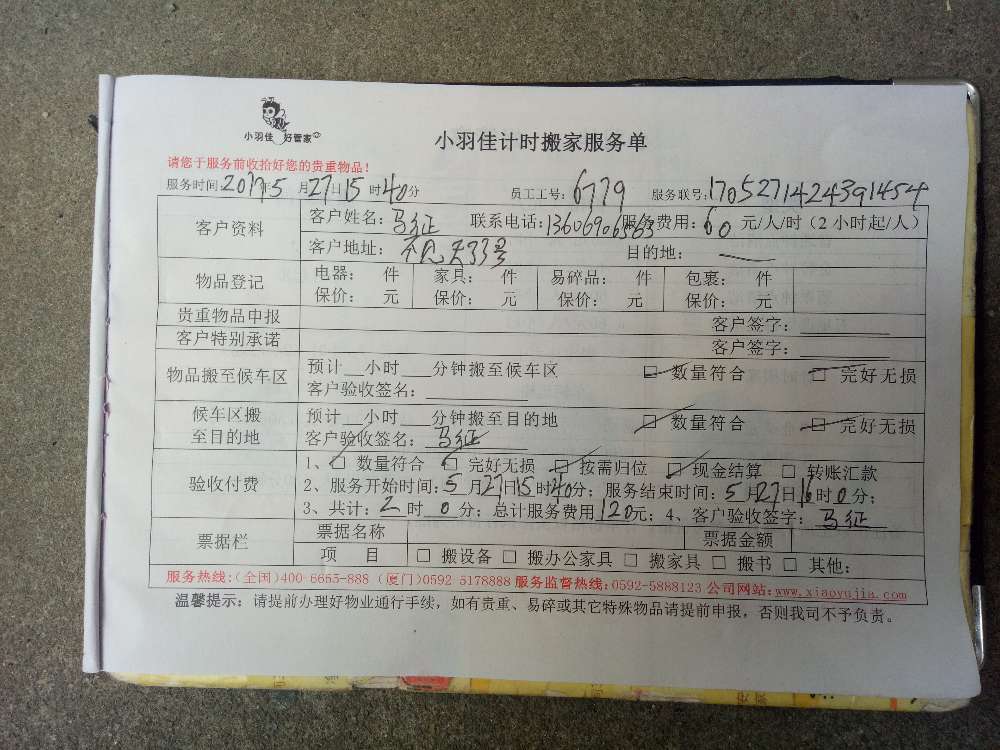 小羽佳 好管家
小羽佳计时搬家服务单
请您于服务前收拾好您的贵重物品！
服务时间：2017年5月27日15时40分 员工工号：6779 服务联号：1705271424391454
客户资料 客户姓名：马征 联系电话：13606906563 服务费用：60元/人/时（2小时起/人）
客户地址： 33号 目的地：
物品登记 电器： 件 家具： 件 易碎品： 件 包裹： 件
保价： 元 保价： 元 保价： 元 保价： 元
贵重物品申报 客户签字：
客户特别承诺 客户签字：
物品搬至候车区 预计__小时___分钟搬至候车区 □ 数量符合 □ 完好无损
客户验收签名：
候车区搬至目的地 预计__小时___分钟搬至目的地 □ 数量符合 □ 完好无损
客户验收签名：马征
验收付费 1、□ 数量符合 □ 完好无损 □ 按需归位 □ 现金结算 □ 转账汇款
2、服务开始时间：5月27日15时40分；服务结束时间：5月27日16时0分；
3、共计：2时0分；总计服务费用120元；4、客户验收签字：马征
票据栏 票据名称 票据金额
项 目 □ 搬设备 □ 搬办公家具 □ 搬家具 □ 搬书 □ 其他：
服务热线：(全国)400-6665-888 (厦门)0592-5178888 服务监督热线：0592-5888123 公司网站：www.xiaoyujia.com
温馨提示：请提前办理好物业通行手续，如有贵重、易碎或其它特殊物品请提前申报，否则我司不予负责。